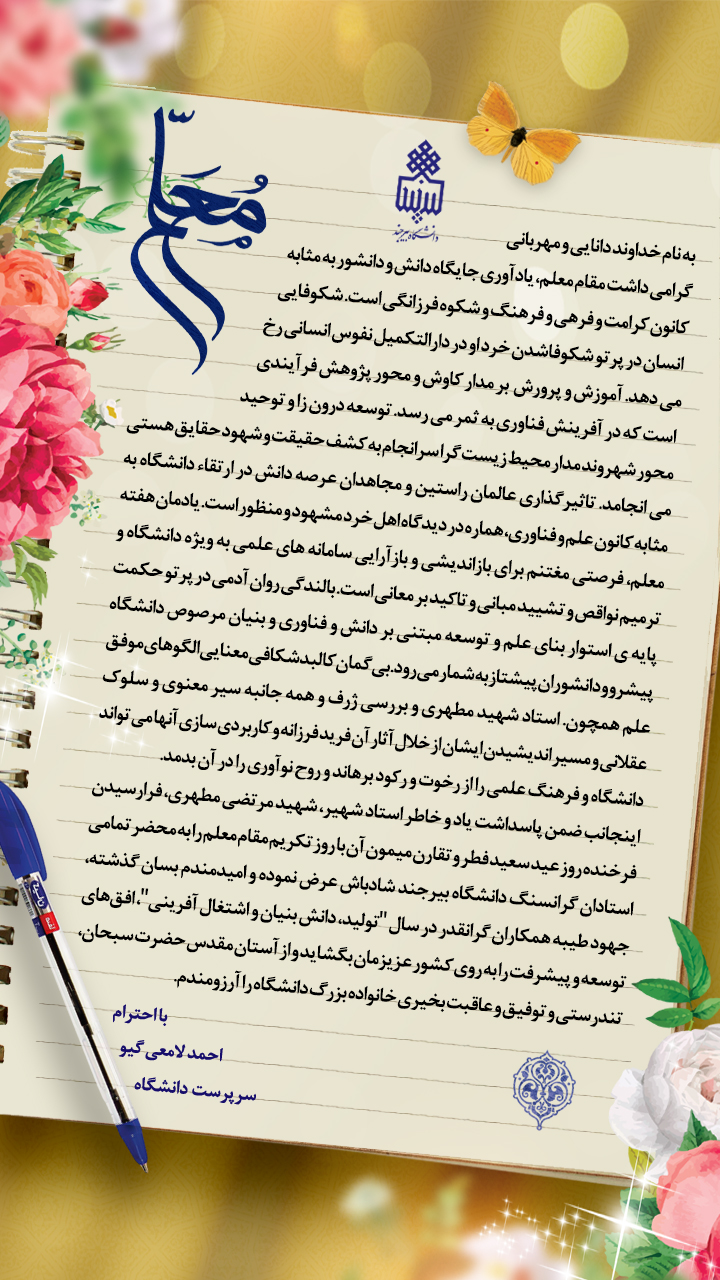 معلم
دانشگاه بیرجند
به نام خداوند دانایی و مهربانی
گرامی داشت مقام معلم، یادآوری جایگاه دانش و دانشور به مثابه
کانون کرامت و فرهی و فرهنگ و شکوه فرزانگی است. شکوفایی
انسان در پرتو شکوفا شدن خرد او در دارالتکمیل نفوس انسانی رخ
می دهد. آموزش و پرورش بر مدار کاوش و محور پژوهش فرآیندی
است که در آفرینش فناوری به ثمر می رسد. توسعه درون زا و توحید
محور شهروندمدار محیط زیست گرا سرانجام به کشف حقیقت و شهود حقایق هستی
می انجامد. تاثیرگذاری عالمان راستین و مجاهدان عرصه دانش در ارتقاء دانشگاه به
مثابه کانون علم و فناوری، هماره در دیدگاه اهل خرد مشهود و منظور است. یادمان هفته
معلم، فرصتی مغتنم برای بازاندیشی و بازآرایی سامانه های علمی به ویژه دانشگاه و
ترمیم نواقص و تشیید مبانی و تاکید بر معانی است. بالندگی روان آدمی در پرتو حکمت
پایه ی استوار بنای علم و توسعه مبتنی بر دانش و فناوری و بنیان مرصوص دانشگاه
پیشرو و دانشوران پیشتاز به شمار می رود. بی گمان کالبدشکافی معنایی الگوهای موفق
علم همچون. استاد شهید مطهری و بررسی ژرف و همه جانبه سیر معنوی و سلوک
عقلانی و مسیر اندیشیدن ایشان از خلال آثار آن فرید فرزانه و کاربردی سازی آنها می تواند
دانشگاه و فرهنگ علمی را از رخوت و رکود برهاند و روح نوآوری را در آن بدمد.
اینجانب ضمن پاسداشت یاد و خاطر استاد شهیر، شهید مرتضی مطهری، فرارسیدن
فرخنده روز عید سعید فطر و تقارن میمون آن با روز تکریم مقام معلم را به محضر تمامی
استادان گرانسنگ دانشگاه بیرجند شادباش عرض نموده و امیدمندم بسان گذشته،
جهود طیبه همکاران گرانقدر در سال "تولید، دانش بنیان و اشتغال آفرینی"، افق های
توسعه و پیشرفت را به روی کشور عزیزمان بگشاید و از آستان مقدس حضرت سبحان،
تندرستی و توفیق و عاقبت بخیری خانواده بزرگ دانشگاه را آرزومندم.
با احترام
احمد لامعی گیو
سرپرست دانشگاه